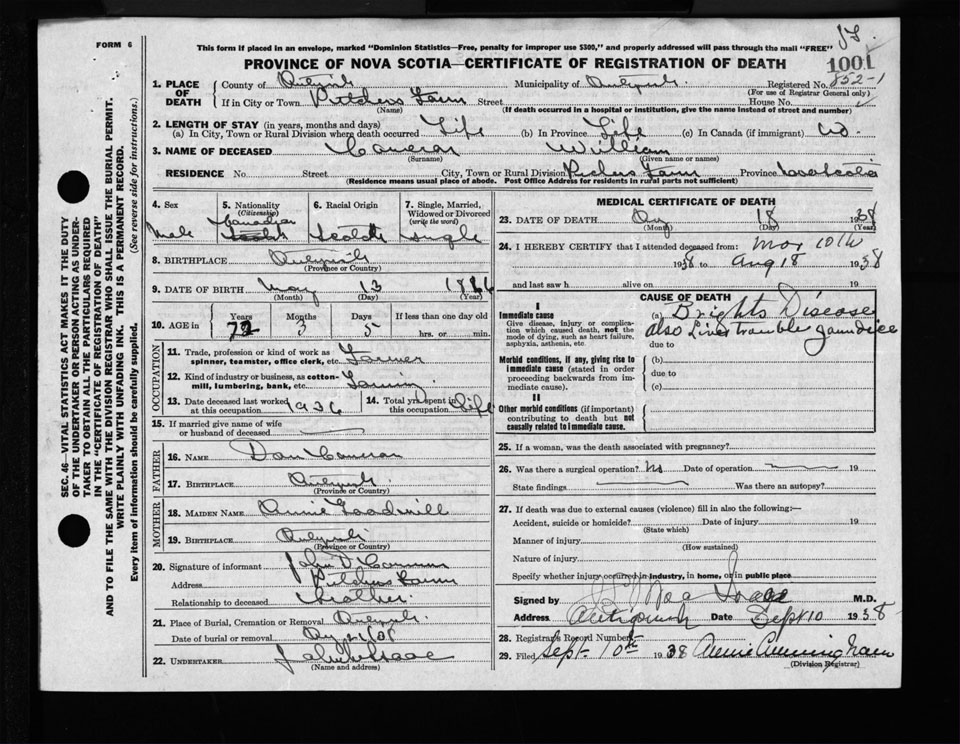 FORM 6
This form if placed in an envelope, marked "Dominion Statistics—Free, penalty for improper use $300," and properly addressed will pass through the mail "FREE"
PROVINCE OF NOVA SCOTIA—CERTIFICATE OF REGISTRATION OF DEATH
1001
1. PLACE OF DEATH
County of
Municipality of
Registered No. 852-1
(For use of Registrar General only)
If in City or Town Pitchers Farm Street House No.
(Name) (If death occurred in a hospital or institution, give the name instead of street and number)
2. LENGTH OF STAY (in years, months and days)
(a) In City, Town or Rural Division where death occurred Life (b) In Province Life (c) In Canada (if immigrant)
3. NAME OF DECEASED Cameron William
(Surname) (Given name or names)
RESIDENCE No. Street City, Town or Rural Division Pichers Farm Province Nova Scotia
(Residence means usual place of abode. Post Office Address for residents in rural parts not sufficient)
4. Sex Male
5. Nationality (Citizenship) Canadian
6. Racial Origin Scotch
7. Single, Married, Widowed or Divorced (write the word) Single
8. BIRTHPLACE
(Province or Country)
9. DATE OF BIRTH May 13 1866
(Month) (Day) (Year)
10. AGE in Years 72 Months 3 Days 5 If less than one day old
hrs. or min.
OCCUPATION
11. Trade, profession or kind of work as spinner, teamster, office clerk, etc. Farmer
12. Kind of industry or business, as cotton-mill, lumbering, bank, etc. Farming
13. Date deceased last worked at this occupation 1936
14. Total yrs. spent in this occupation Life
15. If married give name of wife or husband of deceased
FATHER
16. NAME Dan Cameron
17. BIRTHPLACE
(Province or Country)
MOTHER
18. MAIDEN NAME Annie Goodwill
19. BIRTHPLACE
(Province or Country)
20. Signature of informant John D Cameron
Address Pitchers Farm
Relationship to deceased Brother
21. Place of Burial, Cremation or Removal
Date of burial or removal
22. UNDERTAKER
(Name and address)
MEDICAL CERTIFICATE OF DEATH
23. DATE OF DEATH 18 1938
(Month) (Day) (Year)
24. I HEREBY CERTIFY that I attended deceased from: Mar 10th
1938 to Aug 18 1938
and last saw h alive on 19
CAUSE OF DEATH
I
Immediate cause
Give disease, injury or complication which caused death, not the mode of dying, such as heart failure, asphyxia, asthenia, etc.
(a) Brights Disease
also Liver Trouble Jaundice
due to
Morbid conditions, if any, giving rise to immediate cause (stated in order proceeding backwards from immediate cause).
(b)
due to
(c)
II
Other morbid conditions (if important) contributing to death but not causally related to immediate cause.
25. If a woman, was the death associated with pregnancy?
26. Was there a surgical operation? No Date of operation 19
State findings Was there an autopsy?
27. If death was due to external causes (violence) fill in also the following:—
Accident, suicide or homicide? Date of injury 19
(State which)
Manner of injury
(How sustained)
Nature of injury
Specify whether injury occurred in industry, in home, or in public place
Signed by M.D.
Address Antigonish Date Sept 10 1938
28. Registrar's Record Number
29. Filed Sept. 10th 1938 Annie Cunningham
(Division Registrar)
SEC. 46—VITAL STATISTICS ACT MAKES IT THE DUTY
OF THE UNDERTAKER OR PERSON ACTING AS UNDER-
TAKER TO OBTAIN ALL THE PARTICULARS REQUIRED
IN THE "CERTIFICATE OF REGISTRATION OF DEATH"
AND TO FILE THE SAME WITH THE DIVISION REGISTRAR WHO SHALL ISSUE THE BURIAL PERMIT.
WRITE PLAINLY WITH UNFADING INK. THIS IS A PERMANENT RECORD.
Every item of information should be carefully supplied. (See reverse side for instructions.)